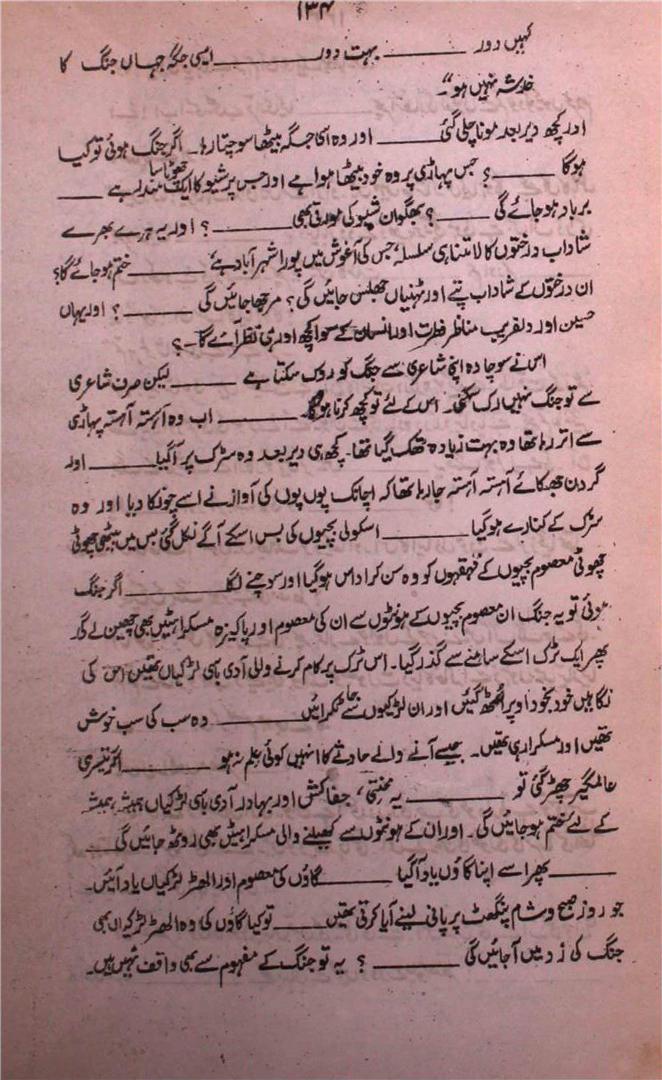 ۱۳۴
کہیں دور ــــــــ بہت دور ــــــــ ایسی جگہ جہاں جنگ کا
خدشہ نہیں ہو"۔
اور کچھ دیر بعد مونا چلی گئی ــــــــ اور وہ اسی جگہ بیٹھا سوچتا رہا۔ اگر جنگ ہوئی تو کیا
ہوگا ــــــــ؟ جس پہاڑی پر وہ خود بیٹھا ہوا ہے اور جس پر شیو کا ایک چھوٹا سا مندر ہے ــــــــ
برباد ہو جائے گی ــــــــ؟ بھگوان شیو کی مورتی بھی ــــــــ؟ اور یہ ہرے بھرے
شاداب درختوں کا لامتناہی سلسلہ، جس کی آغوش میں پورا شہر آباد ہے ــــــــ ختم ہو جائے گا؟
ان درختوں کے شاداب پتے اور ٹہنیاں جھلس جائیں گی؟ مرجھا جائیں گی ــــــــ؟ اور یہاں
حسین اور دلفریب مناظر فطرت اور انسان کے سوا کچھ اور ہی نظر آئے گا۔؟
اس نے سوچا وہ اپنی شاعری سے جنگ کو روک سکتا ہے ــــــــ لیکن صرف شاعری
سے تو جنگ نہیں رک سکتی۔ اس کے لئے تو کچھ کرنا ہوگا۔ ــــــــ اب وہ آہستہ آہستہ پہاڑی
سے اتر رہا تھا وہ بہت زیادہ تھک گیا تھا۔ کچھ ہی دیر بعد وہ سڑک پر آگیا ــــــــ اور
گردن جھکائے آہستہ آہستہ جا رہا تھا کہ اچانک پوں پوں کی آواز نے اسے چونکا دیا اور وہ
سڑک کے کنارے ہو گیا ــــــــ اسکولی بچیوں کی بس اسکے آگے نکل گئی جس میں بیٹھی چھوٹی
چھوٹی معصوم بچیوں کے قہقہوں کو وہ سن کر اداس ہو گیا اور سوچنے لگا ــــــــ اگر جنگ
ہوئی تو یہ جنگ ان معصوم بچیوں کے ہونٹوں سے ان کی معصوم اور پاکیزہ مسکراہٹیں بھی چھین لے گی۔
پھر ایک ٹرک اسکے سامنے سے گذر گیا۔ اس ٹرک پر کام کرنے والی آدی باسی لڑکیاں تھیں اس کی
نگاہیں خود بخود اوپر اٹھ گئیں اور ان لڑکیوں سے جا ٹکرائیں ــــــــ وہ سب کی سب خوش
تھیں اور مسکرا رہی تھیں۔ جیسے آنے والے حادثے کا انہیں کوئی علم نہ ہو ــــــــ اگر تیسری
عالمگیر چھڑ گئی تو ــــــــ یہ محنتی، جفاکش اور بہادر آدی باسی لڑکیاں ہمیشہ ہمیشہ
کے لئے ختم ہو جائیں گی۔ اور ان کے ہونٹوں سے کھیلنے والی مسکراہٹیں بھی روٹھ جائیں گی ــــــــ
ــــــــ پھر اسے اپنا گاؤں یاد آگیا ــــــــ گاؤں کی معصوم اور الھڑ لڑکیاں یاد آئیں۔
جو روز صبح و شام پنگھٹ پر پانی لینے آیا کرتی تھیں ــــــــ تو کیا گاؤں کی وہ الھڑ لڑکیاں بھی
جنگ کی زد میں آجائیں گی ــــــــ؟ یہ تو جنگ کے مفہوم سے بھی واقف نہیں ہیں۔